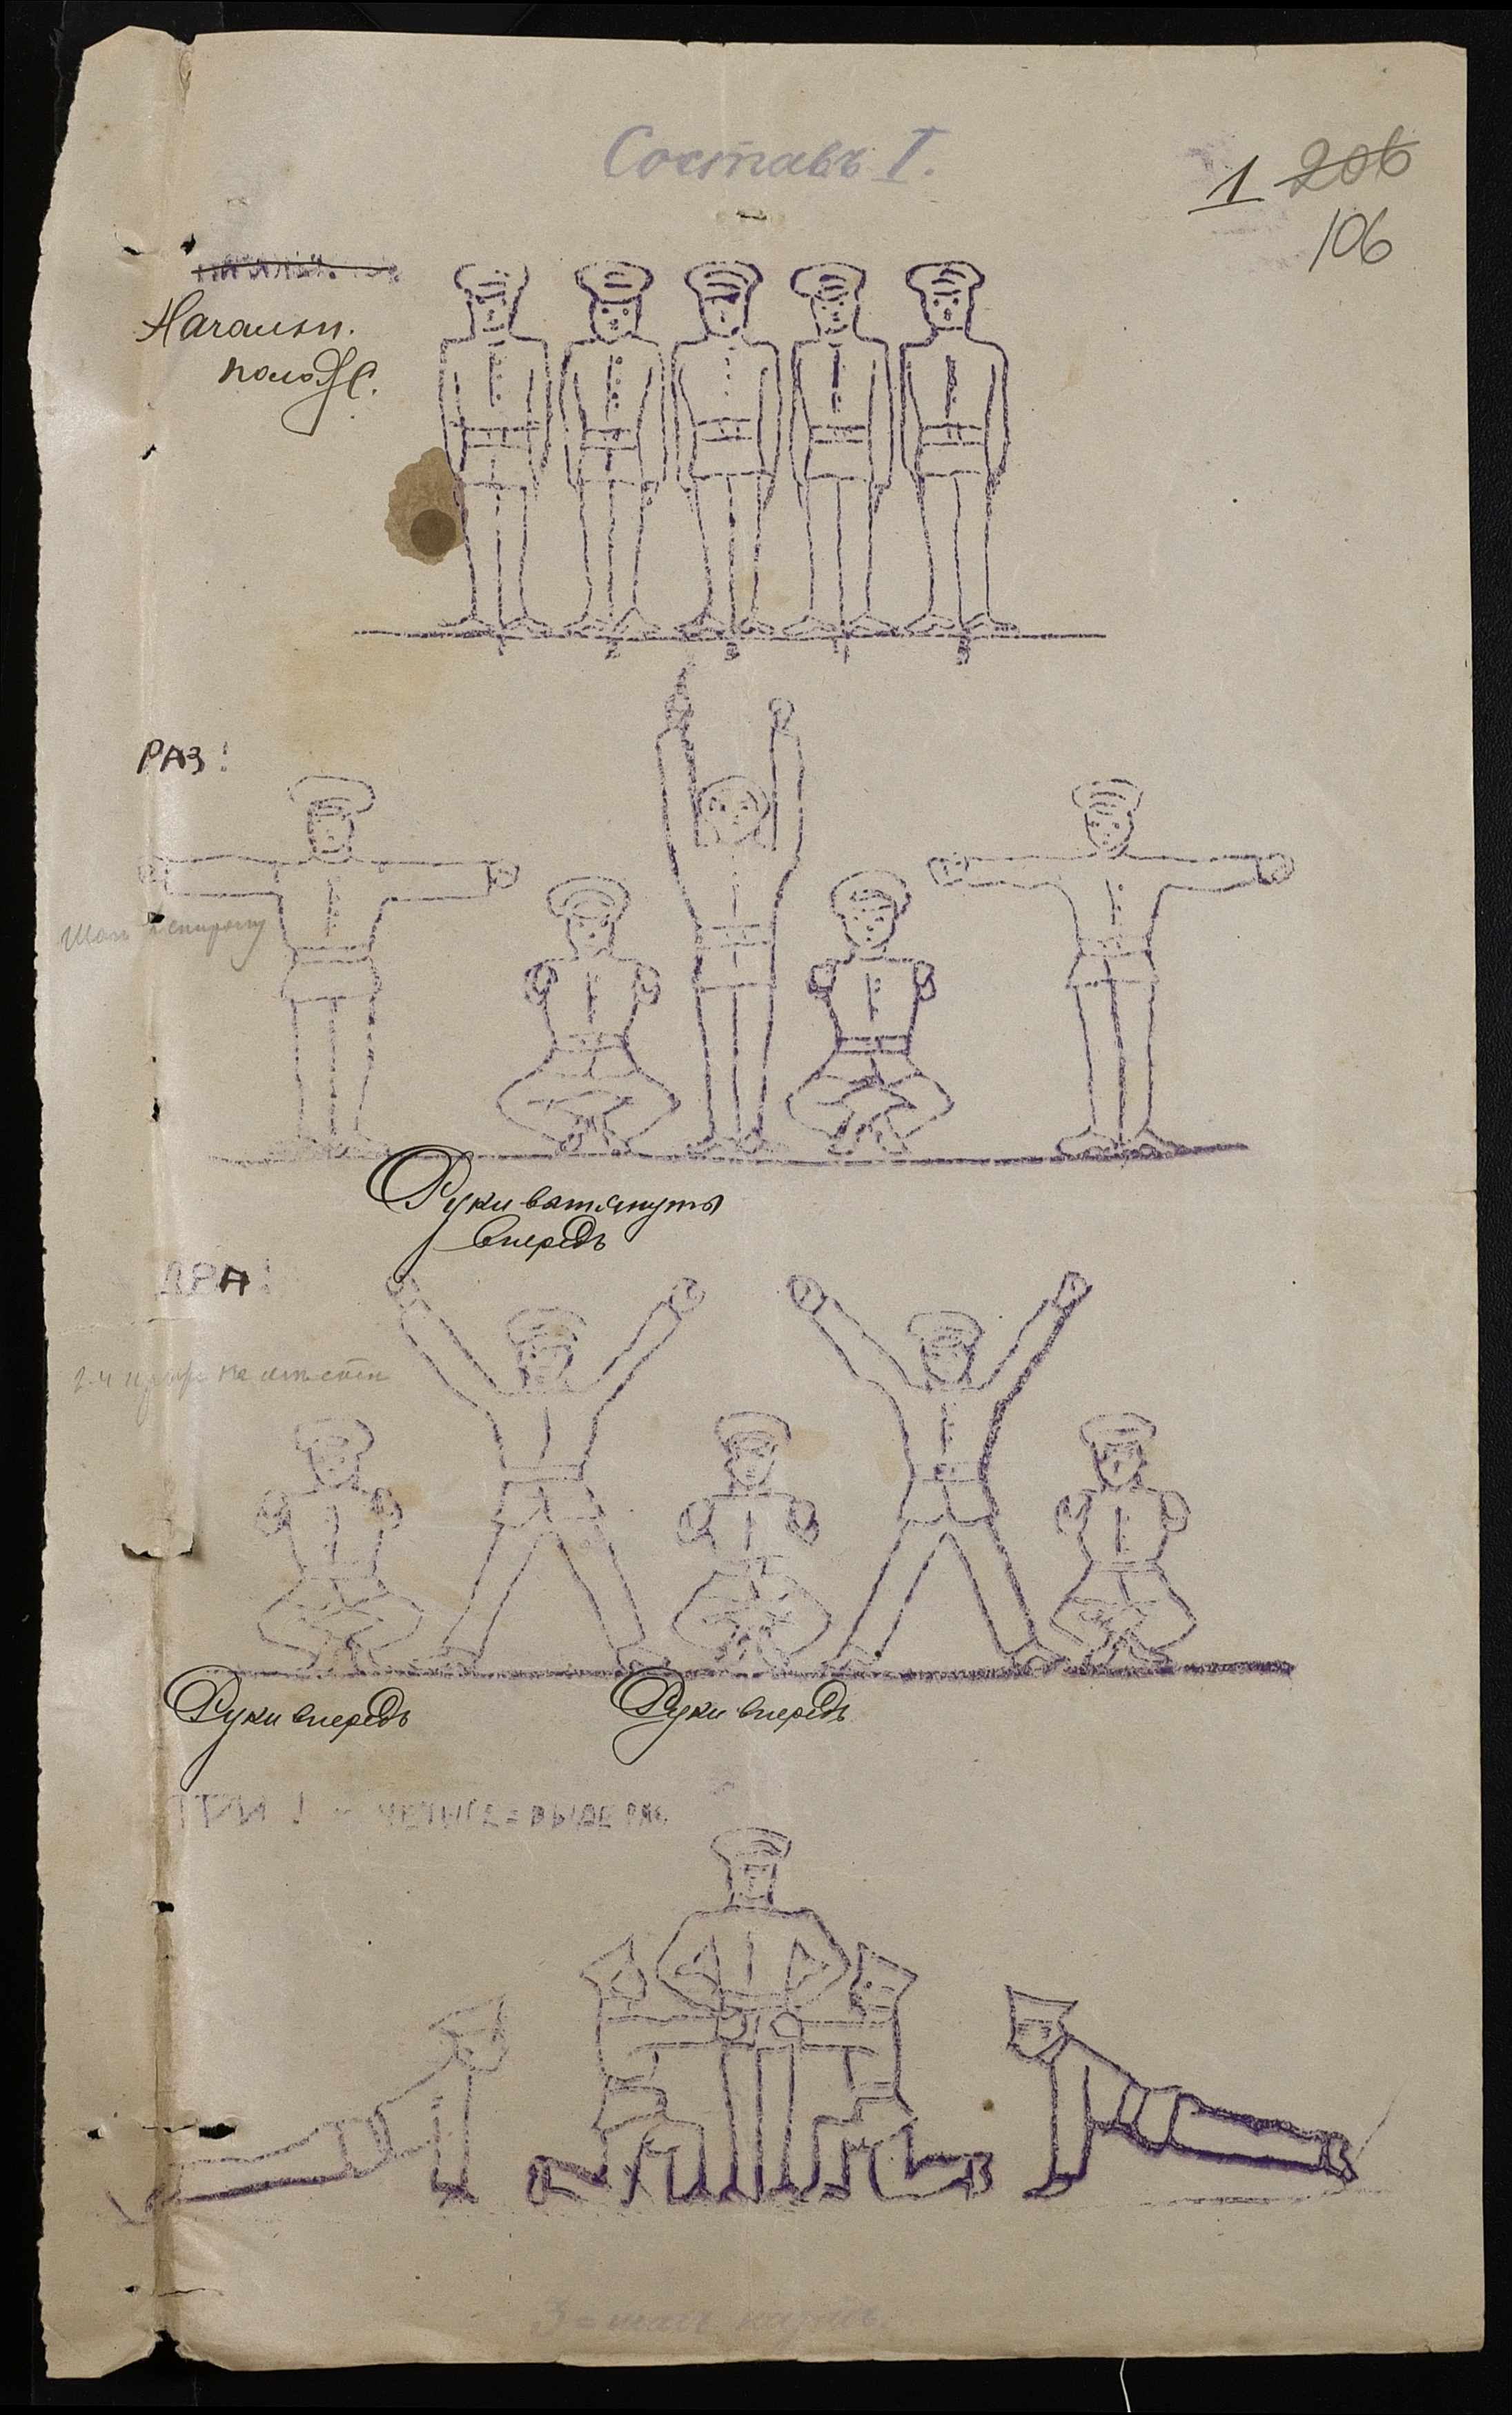 Составъ I.
1 206
106
Начальн.
полож.
РАЗ!
Шаг в сторону
Руки вытянуты
впередъ
ДВА!
на месте
Руки впередъ Руки впередъ
ТРИ! - ЧЕТЫРЕ = ВЫДЕРЖ
3 =